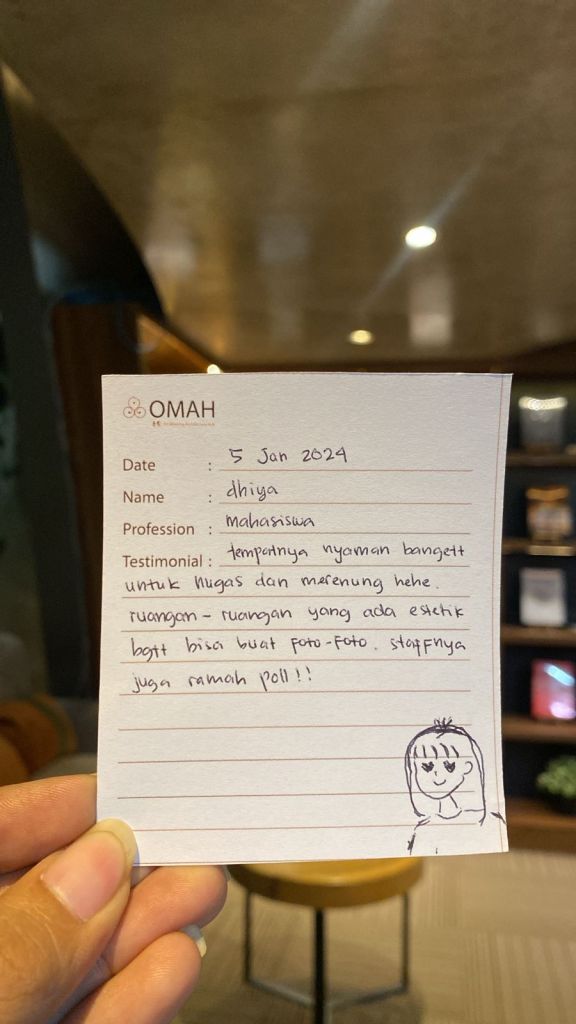 OMAH
Date : 5 Jan 2024
Name : dhiya
Profession : mahasiswa
Testimonial : tempatnya nyaman bangett
untuk nugas dan merenung hehe.
ruangan-ruangan yang ada estetik
bgtt bisa buat foto-foto. staffnya
juga ramah poll!!